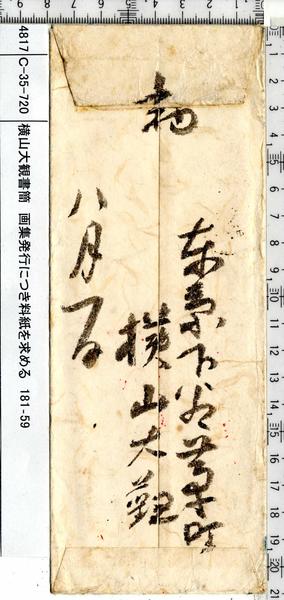 東京下谷茅町
横山大観
八月
4817 C-35-720 横山大観書簡 画集発行につき料紙を求める 181-59
1
2
3
4
5
6
7
8
9
10
11
12
13
14
15
16
17
18
19
20
21